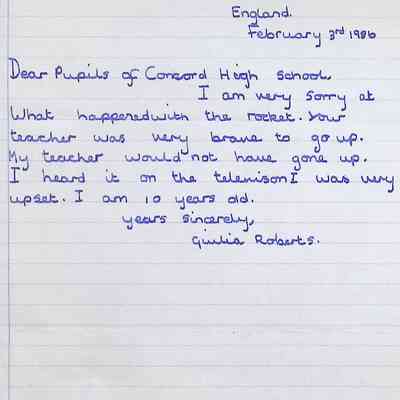 England.
February 3rd 1986
Dear Pupils of Concord High School,
I am very sorry at
What happened with the rocket. Your
teacher was very brave to go up.
My teacher would not have gone up.
I heard it on the televison I was very
upset. I am 10 years old.
years sincerely,
Giulia Roberts.